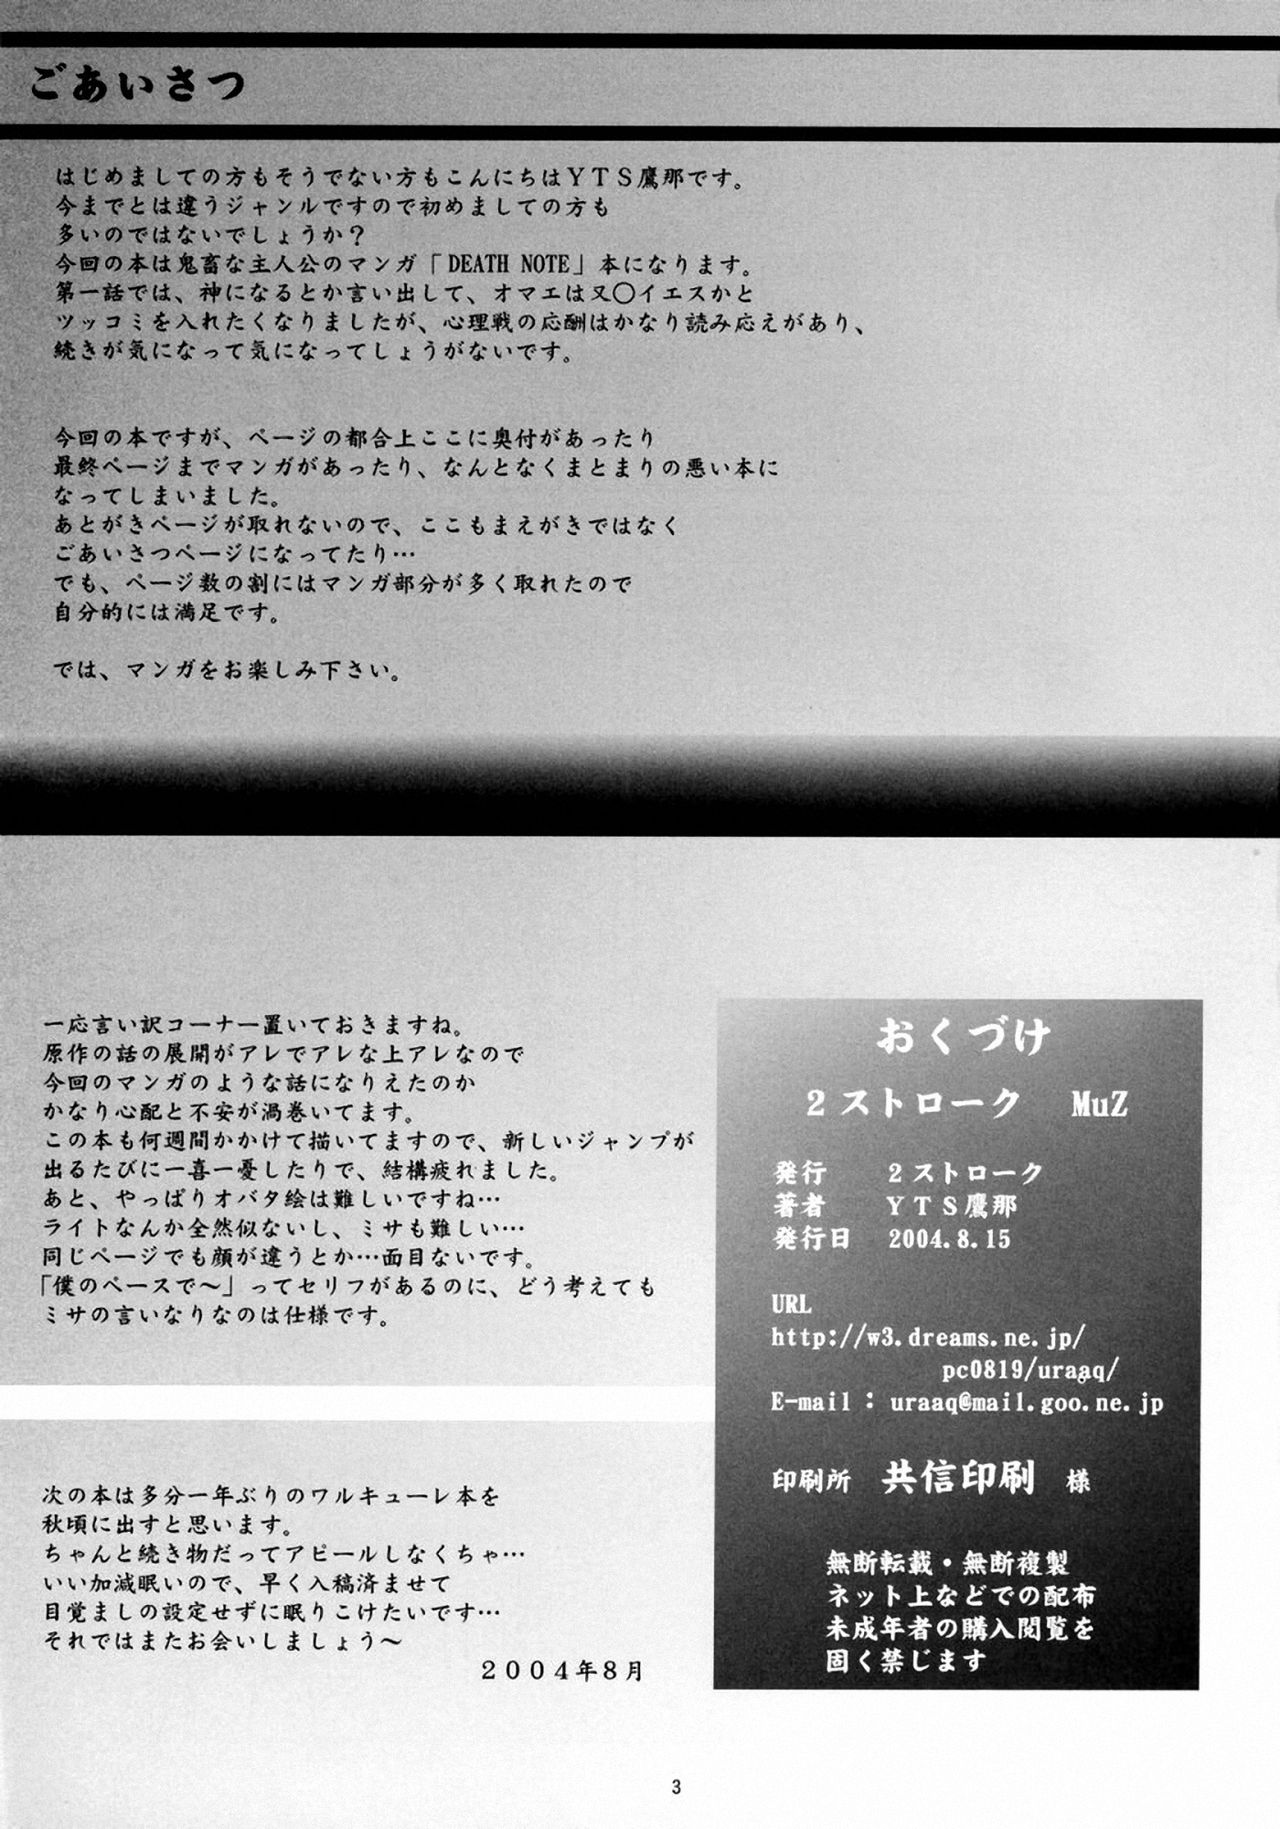 ごあいさつ
はじめましての方もそうでない方もこんにちはＹＴＳ鷹那です。
今までとは違うジャンルですので初めましての方も
多いのではないでしょうか？
今回の本は鬼畜な主人公のマンガ「DEATH NOTE」本になります。
第一話では、神になるとか言い出して、オマエは又〇イエスかと
ツッコミを入れたくなりましたが、心理戦の応酬はかなり読み応えがあり、
続きが気になって気になってしょうがないです。
今回の本ですが、ページの都合上ここに奥付があったり
最終ページまでマンガがあったり、なんとなくまとまりの悪い本に
なってしまいました。
あとがきページが取れないので、ここもまえがきではなく
ごあいさつページになってたり…
でも、ページ数の割にはマンガ部分が多く取れたので
自分的には満足です。
では、マンガをお楽しみ下さい。
一応言い訳コーナー置いておきますね。
原作の話の展開がアレでアレな上アレなので
今回のマンガのような話になりえたのか
かなり心配と不安が渦巻いてます。
この本も何週間かかけて描いてますので、新しいジャンプが
出るたびに一喜一憂したりで、結構疲れました。
あと、やっぱりオバタ絵は難しいですね…
ライトなんか全然似ないし、ミサも難しい…
同じページでも顔が違うとか…面目ないです。
「僕のペースで～」ってセリフがあるのに、どう考えても
ミサの言いなりなのは仕様です。
次の本は多分一年ぶりのワルキューレ本を
秋頃に出すと思います。
ちゃんと続き物だってアピールしなくちゃ…
いい加減眠いので、早く入稿済ませて
目覚ましの設定せずに眠りこけたいです…
それではまたお会いしましょう～
２００４年８月
おくづけ
２ストローク　MuZ
発行　２ストローク
著者　ＹＴＳ鷹那
発行日　2004.8.15
URL
http://w3.dreams.ne.jp/
pc0819/uraaq/
E-mail : uraaq@mail.goo.ne.jp
印刷所　共信印刷　様
無断転載・無断複製
ネット上などでの配布
未成年者の購入閲覧を
固く禁じます
3